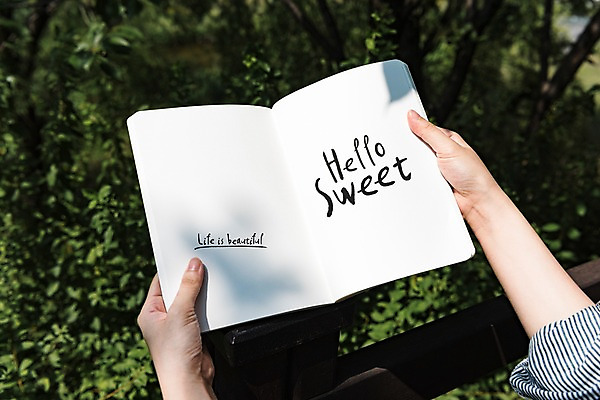 Life is beautiful
Hello
Sweet